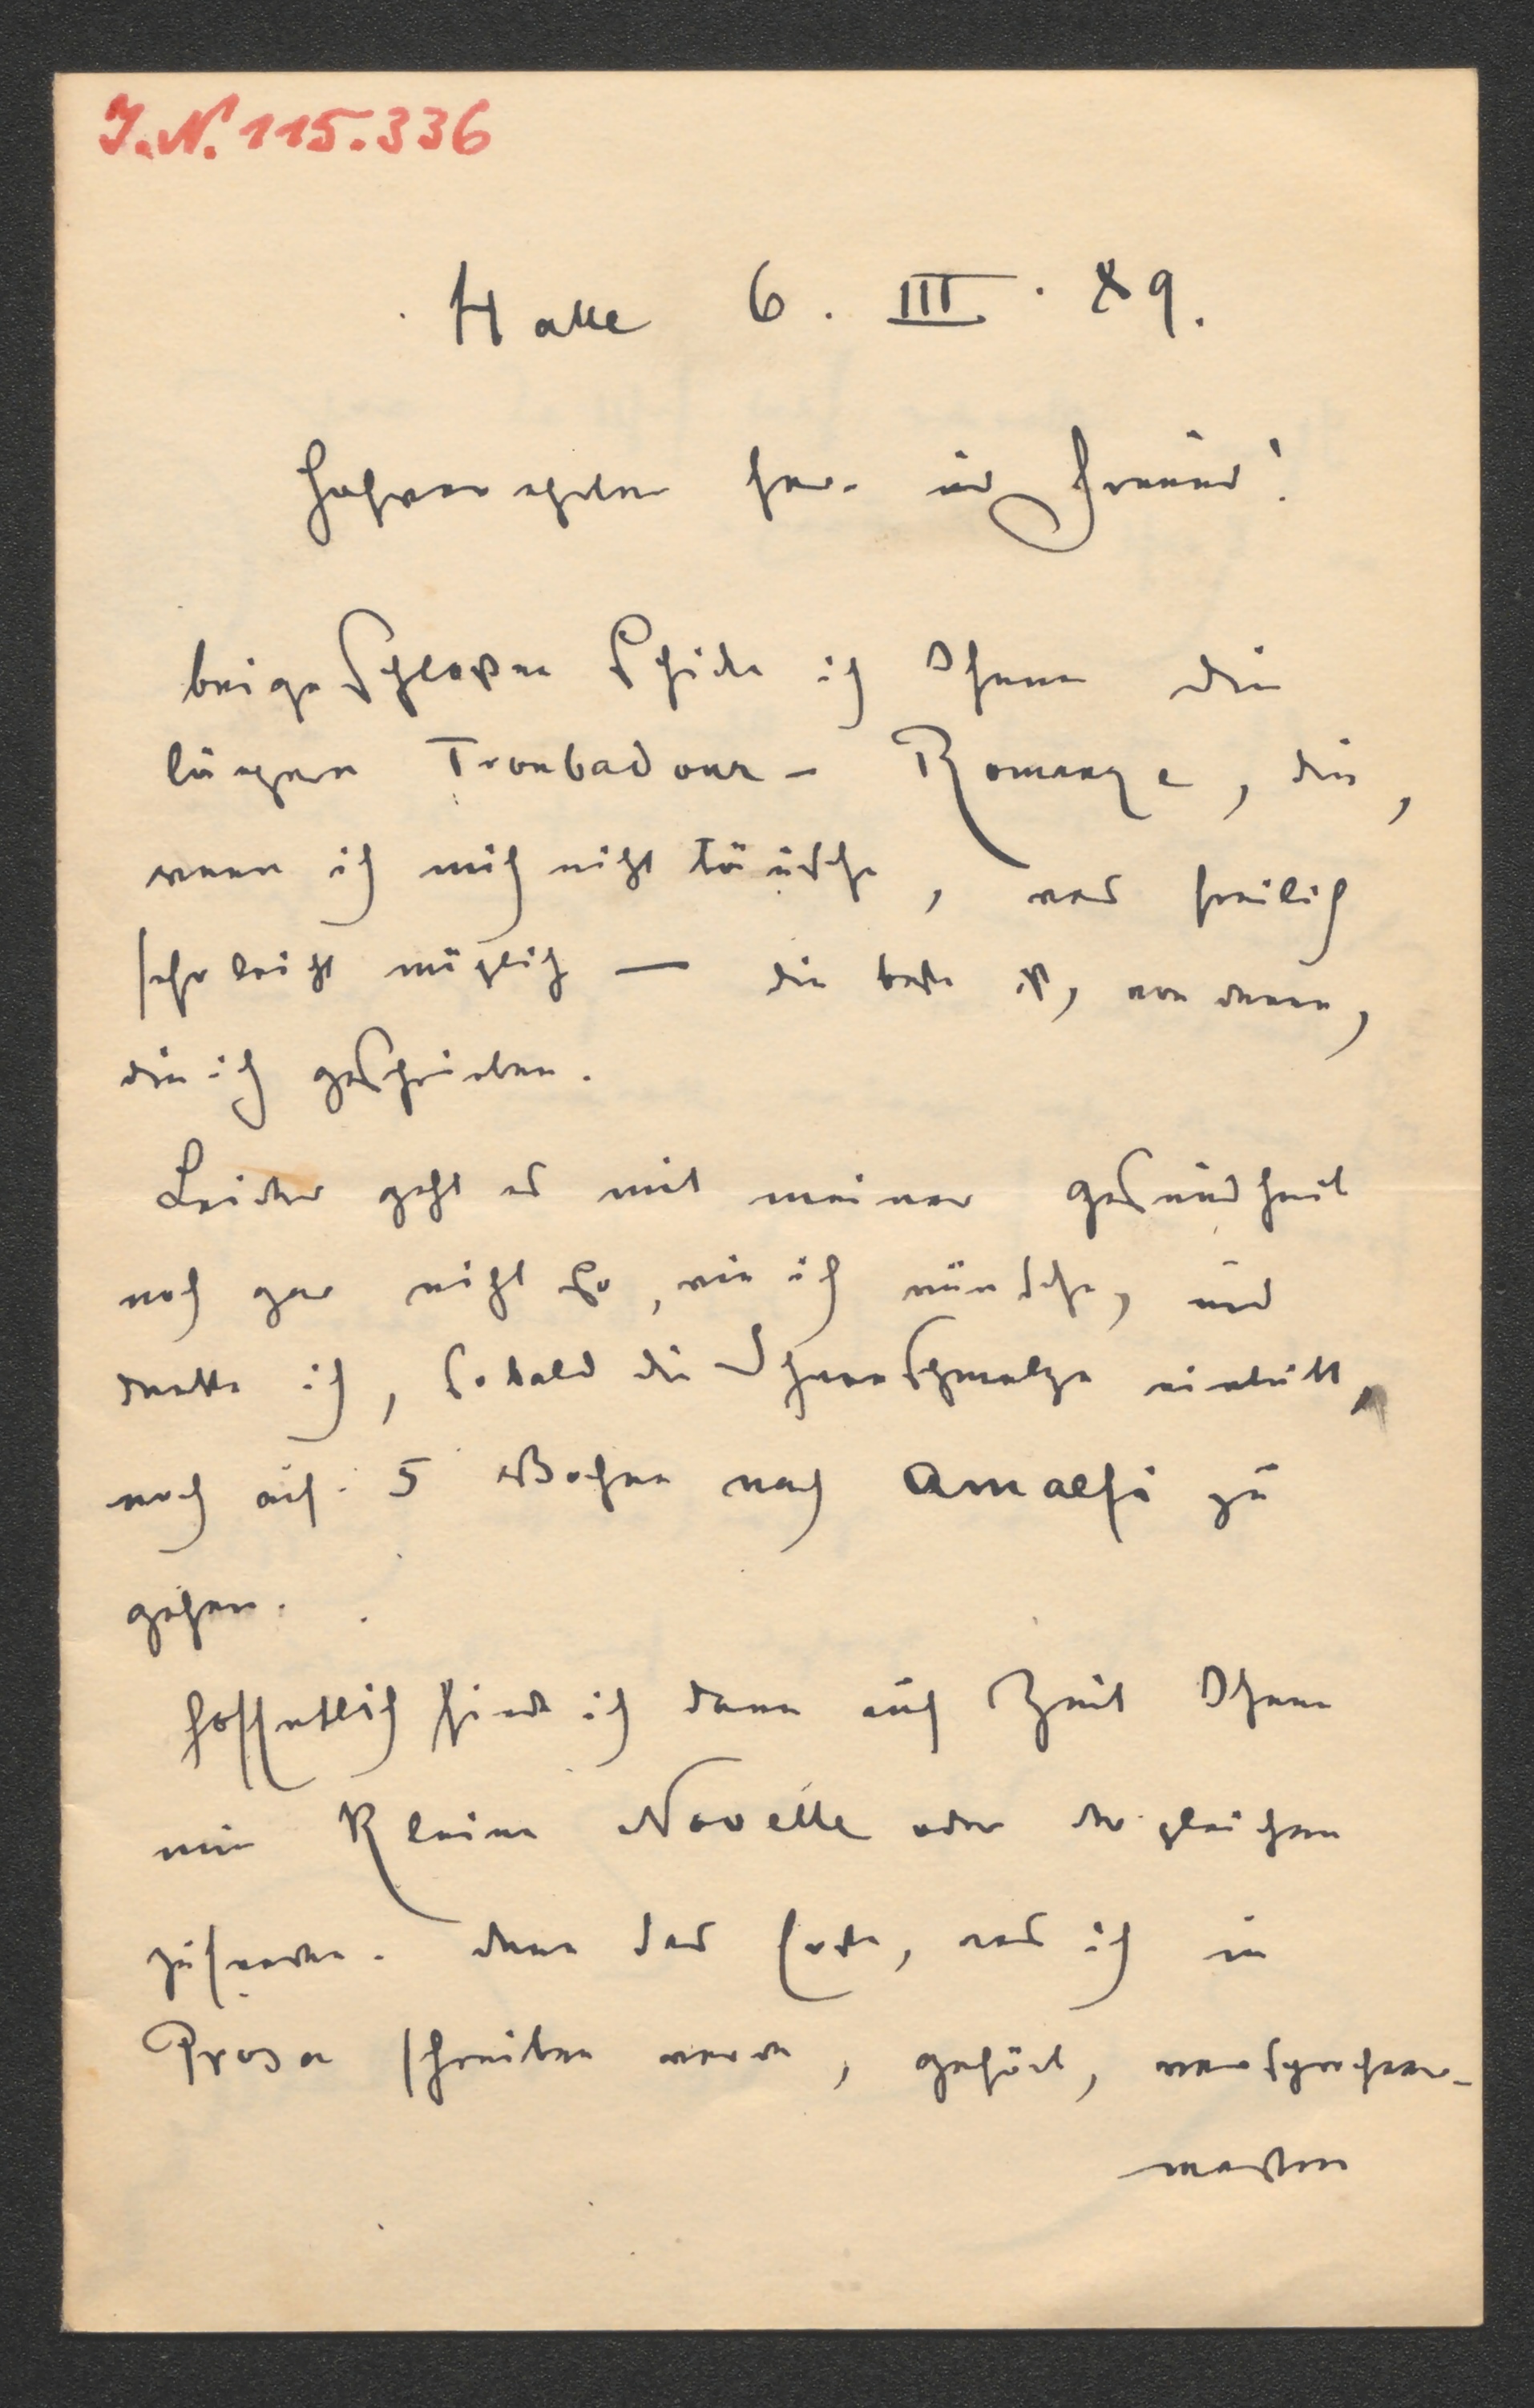 J.N. 115.336
Halle 6. III. 89.
Hochverehrter Herr und Freund!
beigeschloßen schicke ich Ihnen die
längere Troubadour- Romanze, die,
wenn ich mich nicht täusche, was freilich
sehr leicht möglich — die beste ist, von denen,
die ich geschrieben.
Leider geht es mit meiner Gesundheit
noch gar nicht so, wie ich wünsche, und
denke ich, sobald die Schneeschmelze eintritt,
noch auf 5 Wochen nach Amalfi zu
gehen.
Hoffentlich finde ich dann auch Zeit Ihnen
eine kleine Novelle oder dergleichen
zu senden. Denn das Erste, was ich in
Prosa schreiben werde, gehört, versprochener-
maßen